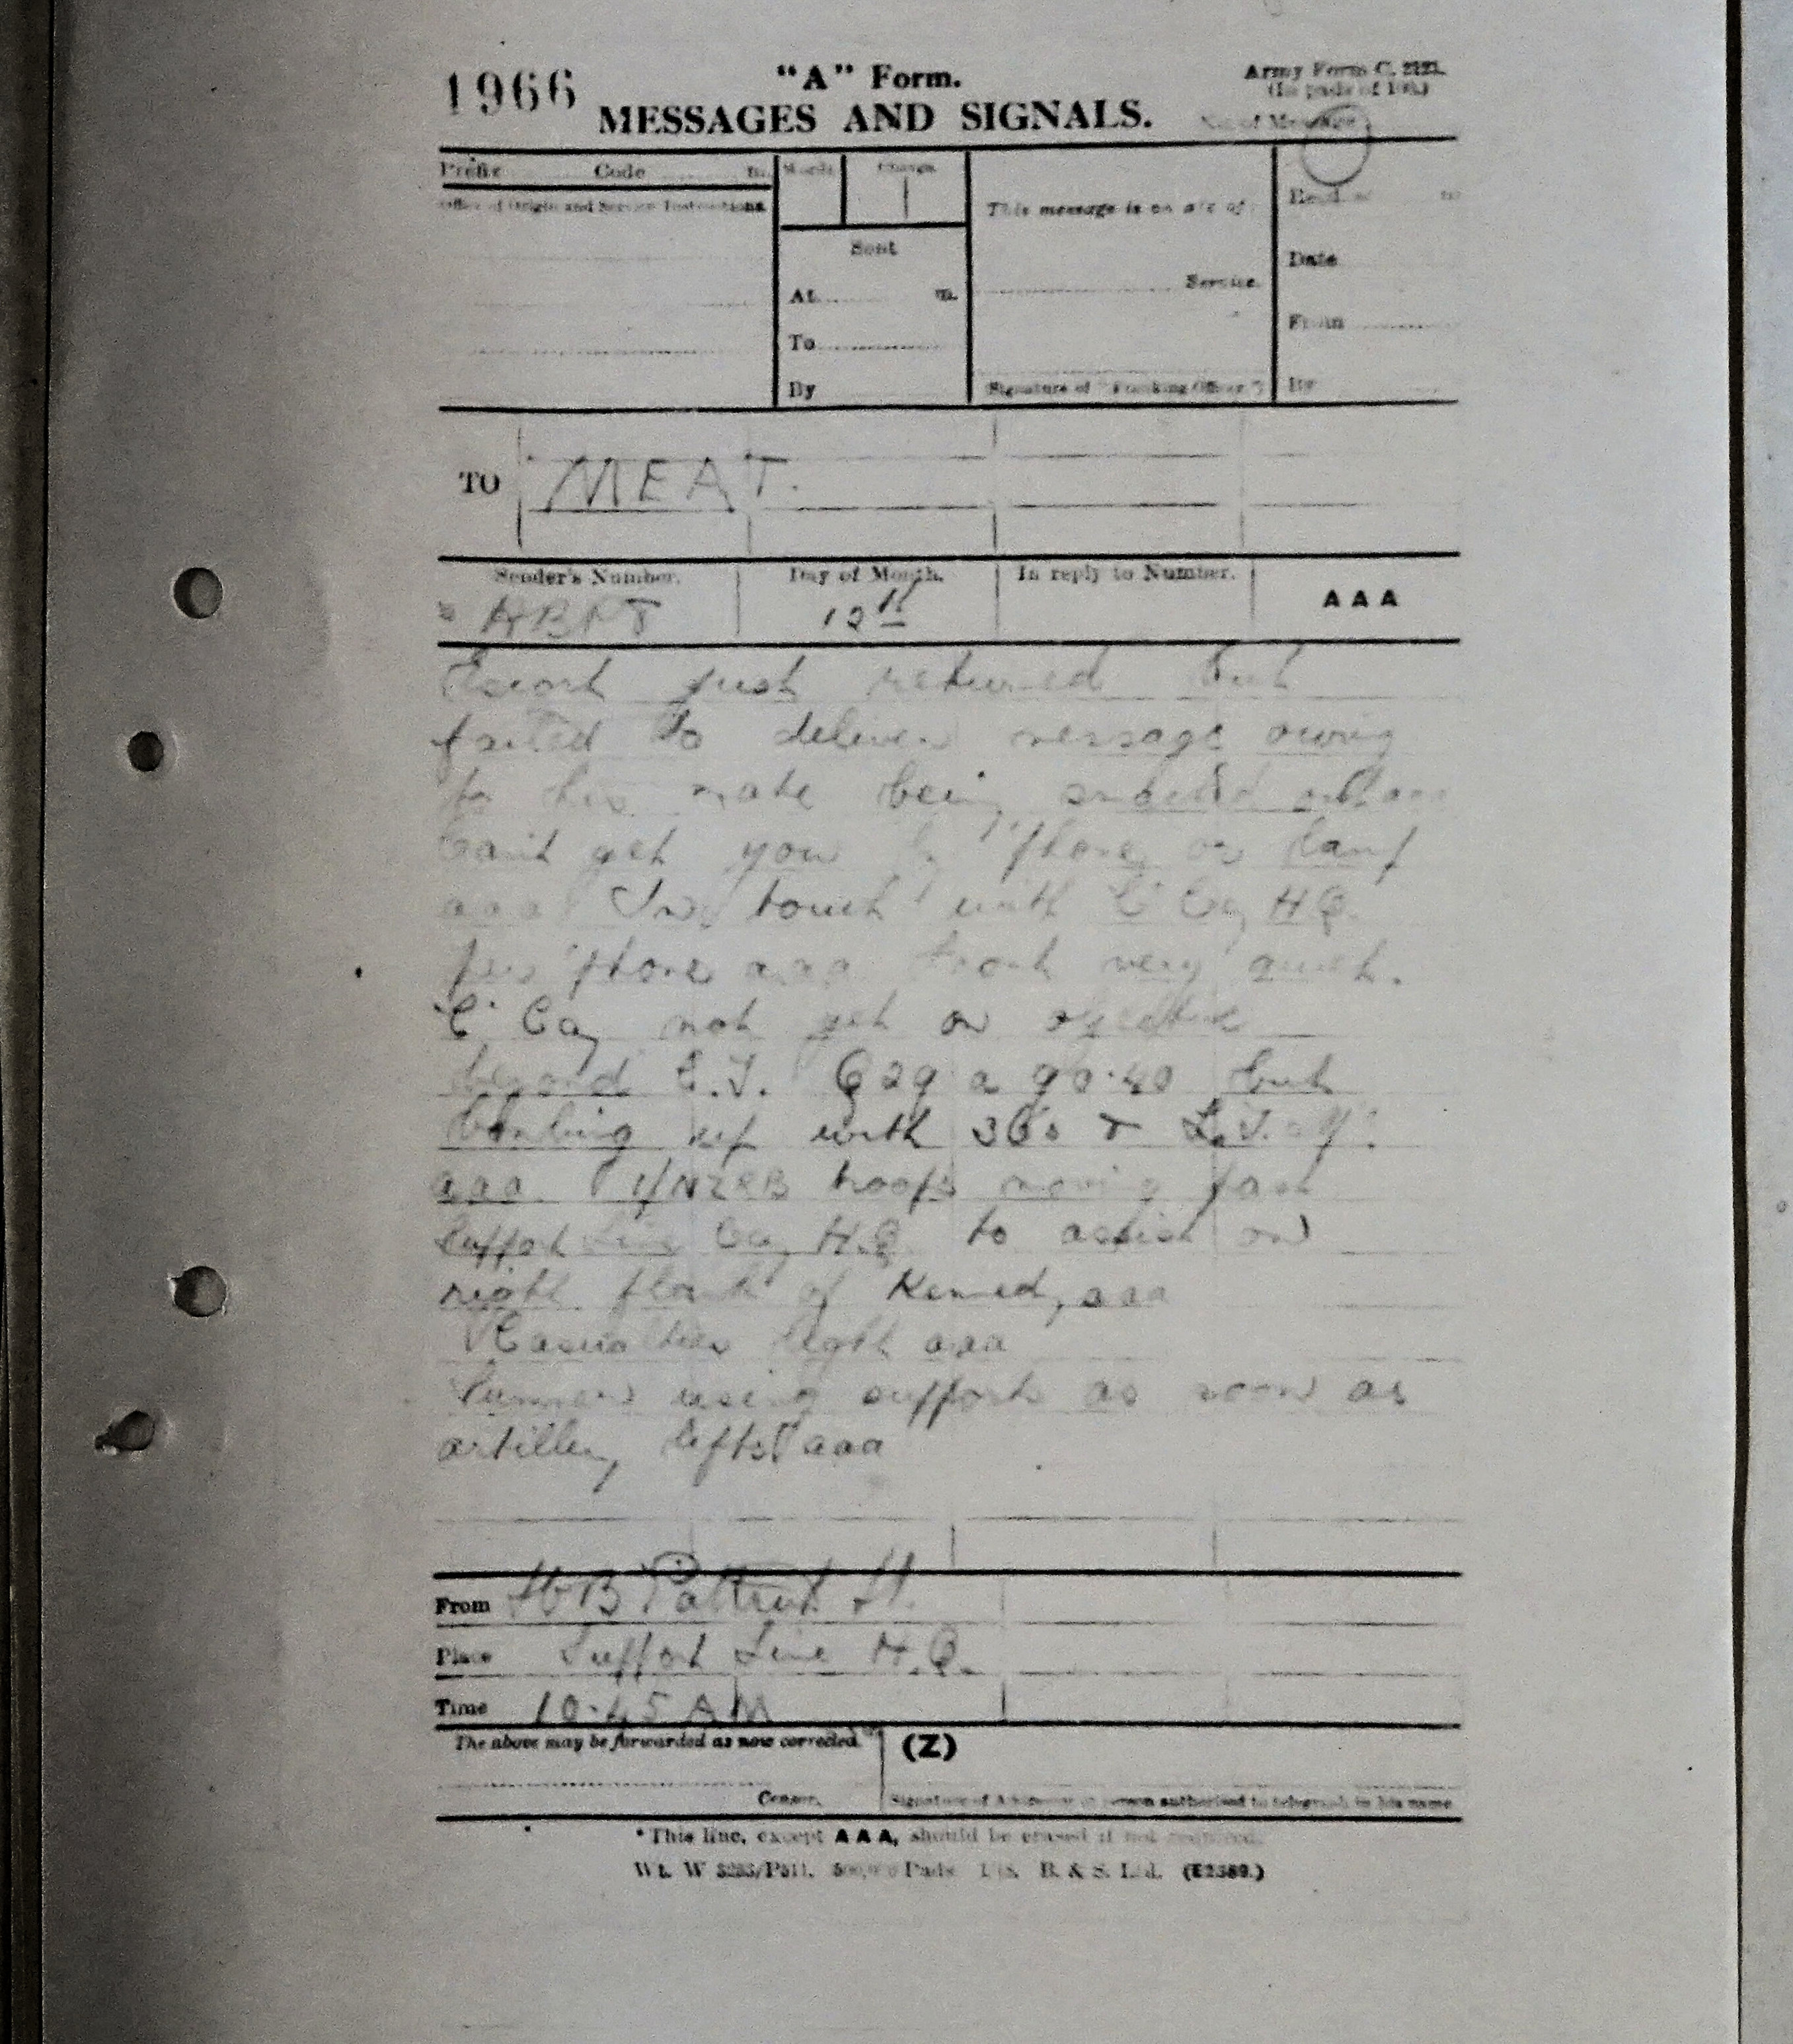 1966
"A" Form.
MESSAGES AND SIGNALS.
Army Form C. 2121.
(In pads of 100.)
No. of Message
Prefix Code m.
Words Charge
Office of Origin and Service Instructions.
This message is on a/c of:
Sent
Date
At m.
Service.
From
To
By
(Signature of "Franking Officer.")
By
TO MEAT.
Sender's Number. Day of Month. In reply to Number. AAA
12th
just returned but
failed to deliver message owing
to his mate being
Can't get you by 'phone or lamp
aaa In touch with C Coy HQ.
per 'phone aaa Front very quiet.
'C' Coy not yet on objective
beyond C.T. Q29 a 90.40 but
bombing up with 36s & L.T.
aaa 1/NZRB troops moving past
Support Line Coy H.Q. to assist on
right flank of Kennedy aaa
Casualties light aaa
using supports as soon as
artillery lifts aaa
From
Place Support Line H.Q.
Time 10.45 AM
The above may be forwarded as now corrected. (Z)
Censor. Signature of Addressor or person authorised to telegraph in his name
*This line, except AAA, should be erased if not required.
Pads B. & S. Ltd. (E2389.)